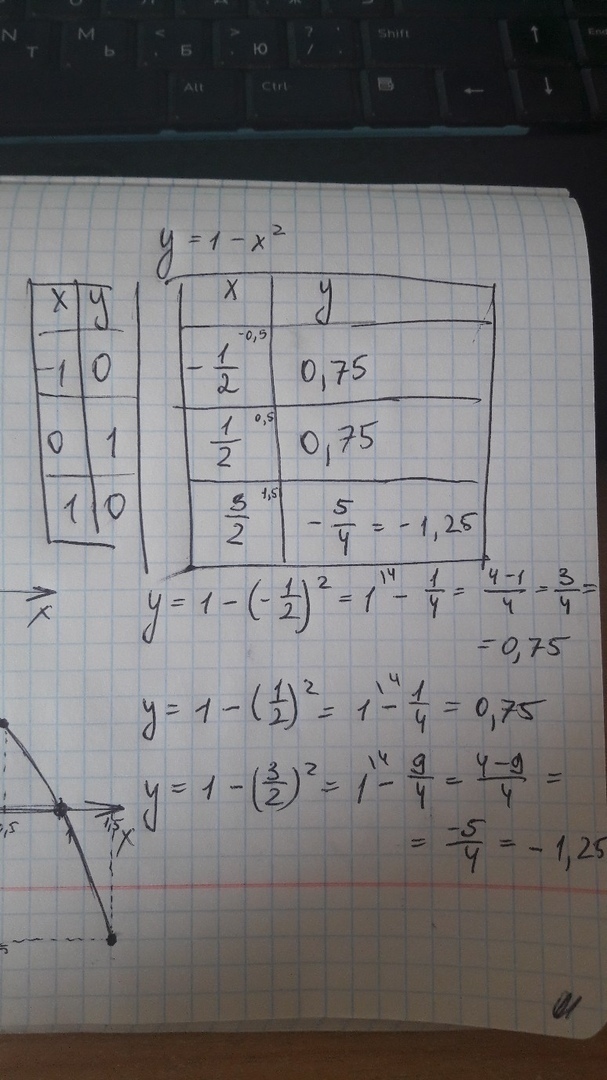 N Т М Ь < , Б > . Ю ? / . Shift ↑ End
Alt Ctrl ← ↓
y = 1 - x²
x y
-1 0
0 1
1 0
x y
-1/2 -0,5 0,75
1/2 0,5 0,75
3/2 1,5 -5/4 = -1,25
x
y = 1 - (-1/2)² = 1\4 - 1/4 = 4-1/4 = 3/4 =
= 0,75
y = 1 - (1/2)² = 1\4 - 1/4 = 0,75
y = 1 - (3/2)² = 1\4 - 9/4 = 4-9/4 =
= -5/4 = -1,25
0,5 1 1,5 x